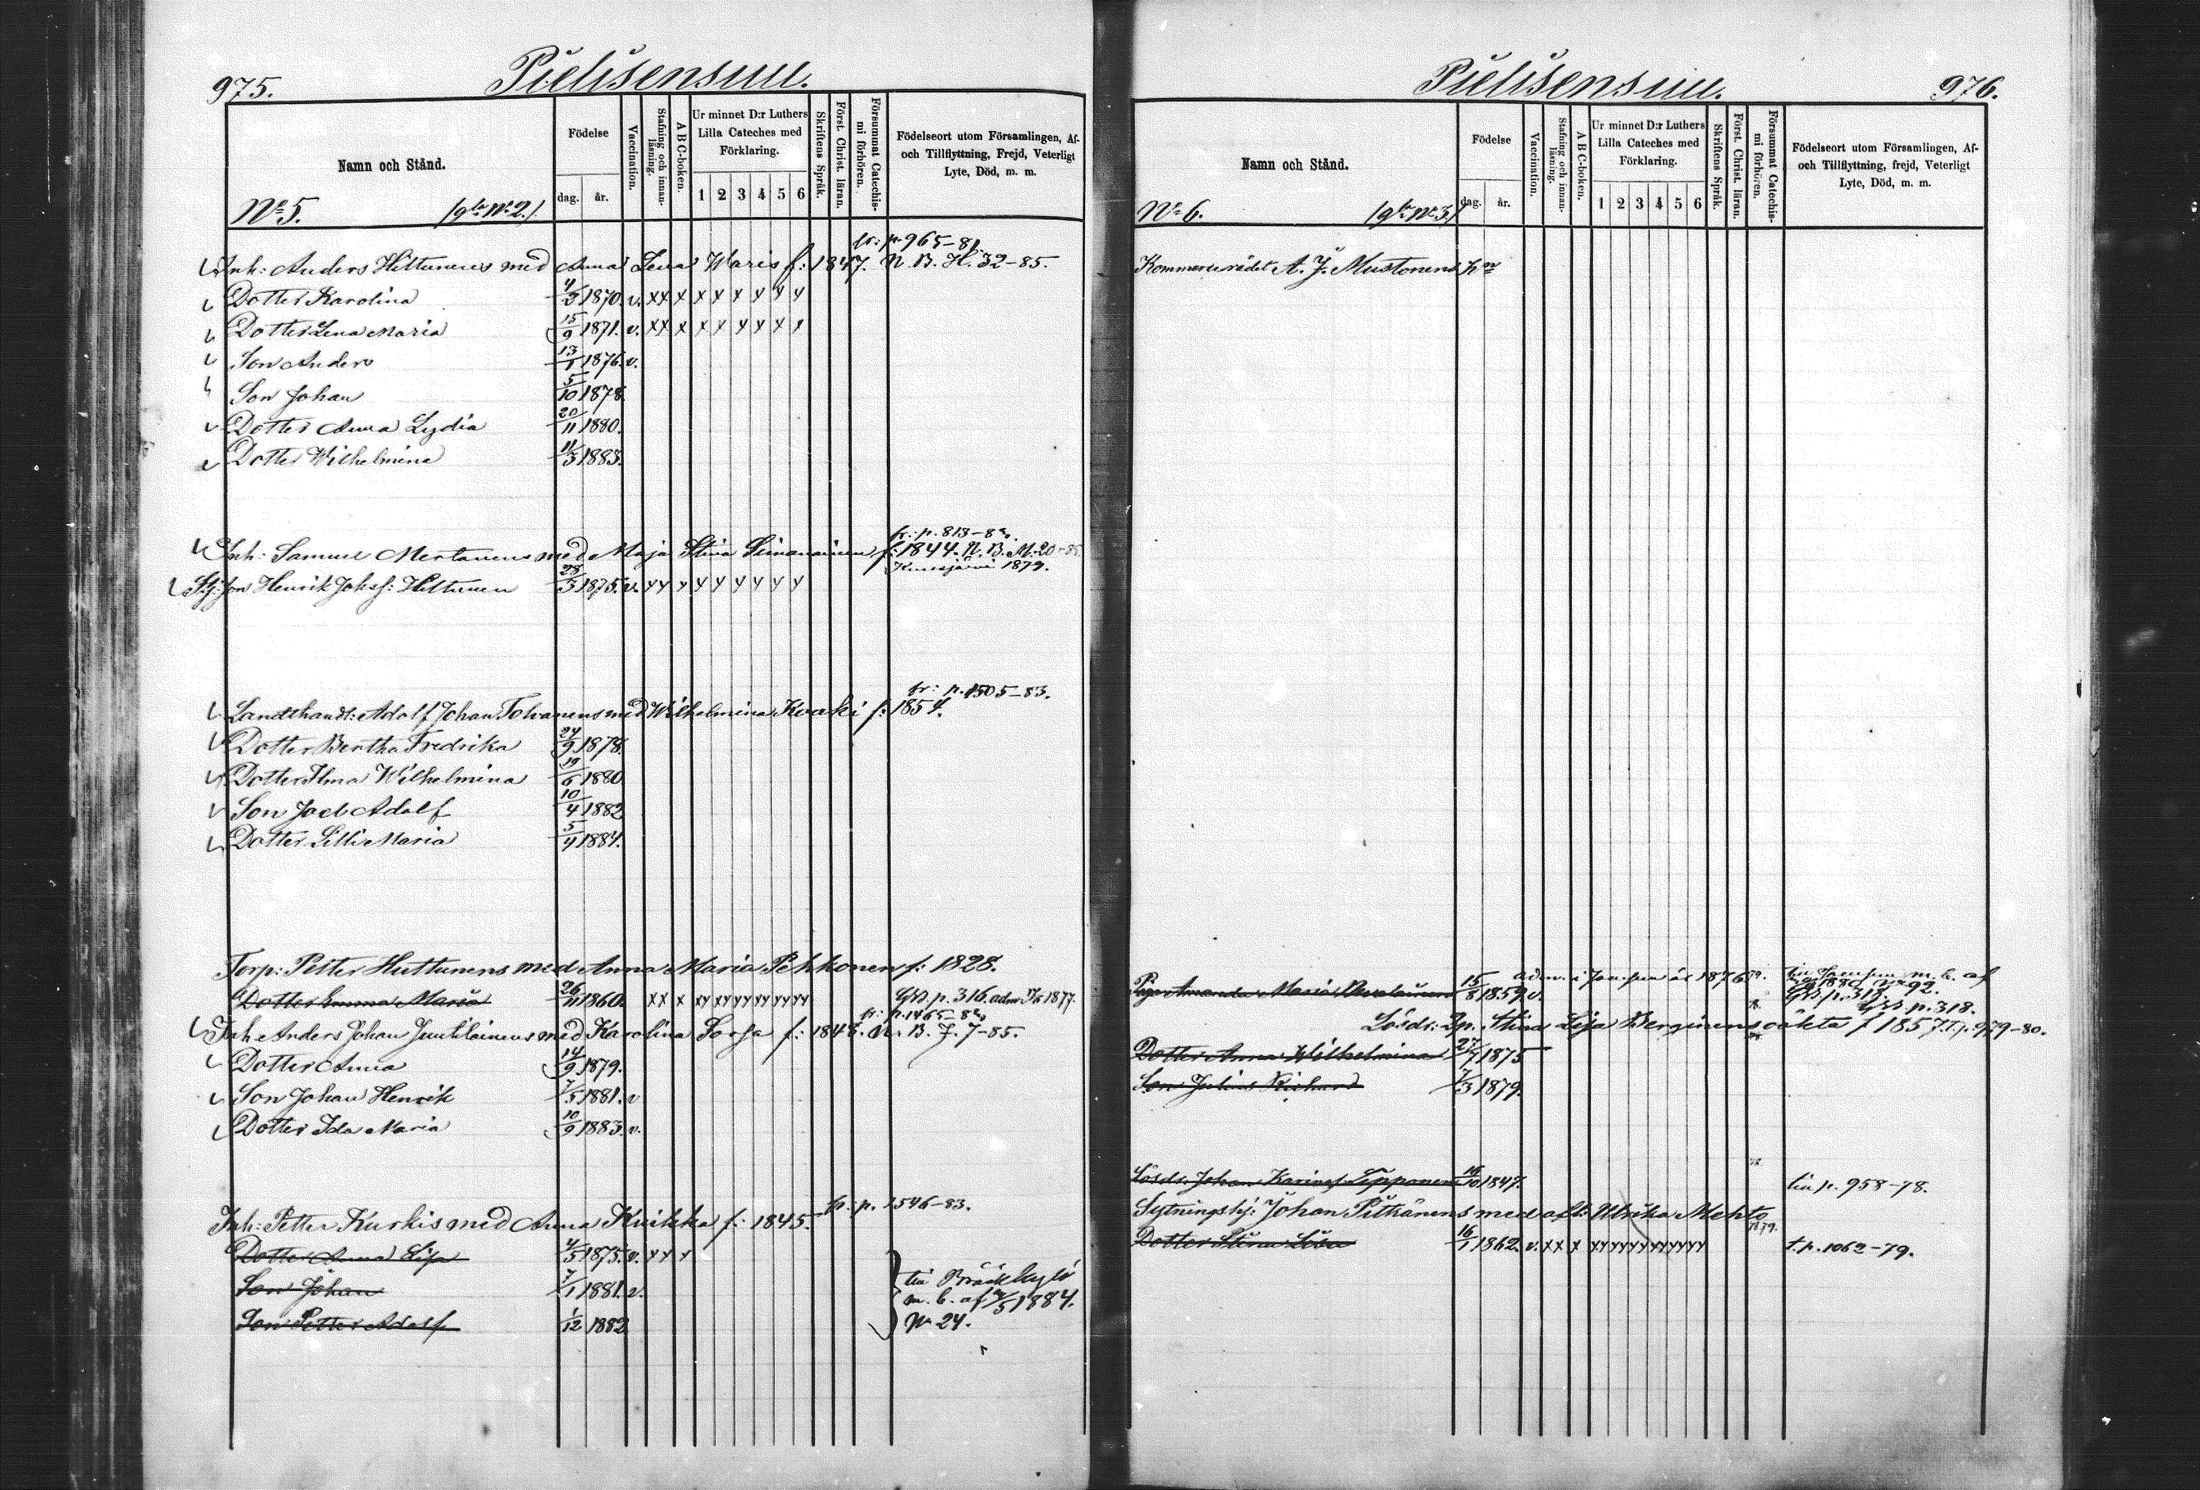 975.
Pielisensuu.
Namn och Stånd.
Födelse
dag. år.
Vaccination.
Stafning och innanläsning.
A B C-boken.
Ur minnet D:r Luthers Lilla Cateches med Förklaring.
1 2 3 4 5 6
Skriftens Språk.
Först. Christ. läran.
Försummat Catechismi förhören.
Födelseort utom Församlingen, Af- och Tillflyttning, Frejd, Veterligt Lyte, Död, m. m.
No 5. No 2.
fr: p. 965-81.
Inh: Anders Hiltunens med Anna Lena Waris f: 1847. N. B. H. 32-85.
Dotter Karolina 4/3 1870. v. x x x x x x x x x
Dotter Lena Maria 15/9 1871. v. x x x x x x x x x
Son Anders 13/1 1876. v.
Son Johan 5/10 1878.
Dotter Anna Lydia 20/11 1880.
Dotter Wilhelmina 11/3 1883.
fr: p. 813-82.
Inh: Samuel Mertanens med Maja Stina f: 1844. N. B. M. 20-85.
1879.
Son Henrik Johsf: Hiltunen 28/3 1875. v. x x x x x x x x x
fr: p. 1505-83.
Landthandl: Adolf Johan Tolvanens med Wilhelmina Koski f: 1854.
Dotter Bertha Fredrika 24/9 1878.
Dotter Ilma Wilhelmina 19/6 1880
Son Joel Adolf 10/4 1882
Dotter Lilli Maria 5/4 1884.
Torp: Petter Huttunens med Anna Maria Pehkonen f: 1828.
Dotter Emma Maria 26/11 1860. x x x xx xx xx xx xx xx GB. p. 316. adm. 1877.
fr: p. 1465-82
Inh: Anders Johan Juutilainens med Karolina Sorsa f: 1848. N. B. J. 7-85.
Dotter Anna 14/9 1879.
Son Johan Henrik 7/5 1881. v
Dotter Ida Maria 10/9 1883. v.
fr: p. 1546-83.
Inh: Petter Kurkis med Anna Kuikka f: 1845.
Dotter Anna Lisa 4/5 1875. v. x x x
Son Johan 7/1 1881. v.
Son Petter Adolf 1/12 1882
m. b. af 1884.
No 24.
Pielisensuu.
976.
Namn och Stånd.
Födelse
dag. år.
Vaccination.
Stafning och innanläsning.
A B C-boken.
Ur minnet D:r Luthers Lilla Cateches med Förklaring.
1 2 3 4 5 6
Skriftens Språk.
Först. Christ. läran.
Försummat Catechismi förhören.
Födelseort utom Församlingen, Af- och Tillflyttning, frejd, Veterligt Lyte, Död, m. m.
No 6. No 3.
Kommerserådet A. J. Mustonens
adm. i år 1876. m. b. af
Piga Amanda Maria 15/8 1859. v. 1880 No 92.
GB. p. 318.
Stina Lisa Berginens oäkta f 1857. T. p. 979-80.
Dotter Anna Wilhelmina 27/7 1875
Son Julius Richard 7/3 1879.
Lösdr: Johan Karinsf. Lipponen 1847. till p. 958-78.
Sytningshj: Johan Pitkänens med afl: Ulrika Mehto
Dotter Stina Lisa 16/1 1862. v. x x x xx xx xx xx xx xx 1879. t. p. 1062-79.